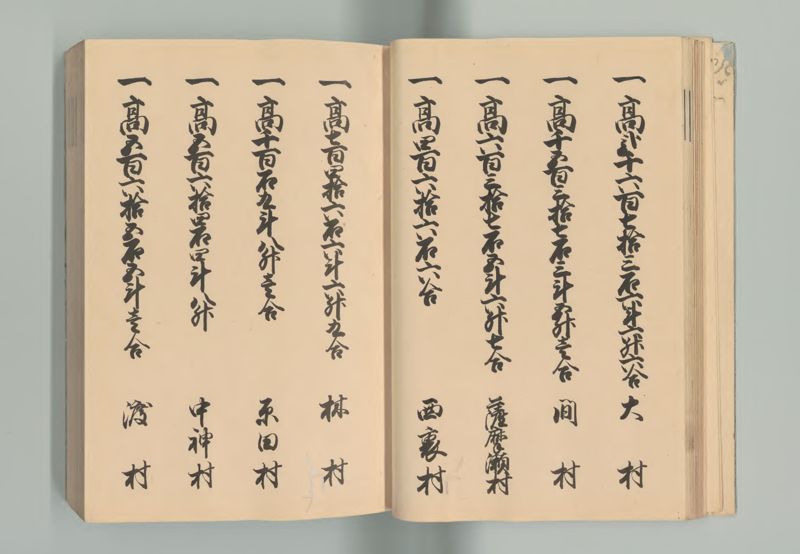 一高弐千六百七拾三石六斗六升六合 大村
一高千五百三拾七石三斗五升壱合 間村
一高六百三拾七石五斗六升七合 薩摩瀬村
一高四百六拾六石六合 西裏村
一高七百四拾六石六斗六升九合 林村
一高千百石九斗八升壱合 原田村
一高五百六拾四石四斗八升 中神村
一高五百六拾五石五斗壱合 渡村